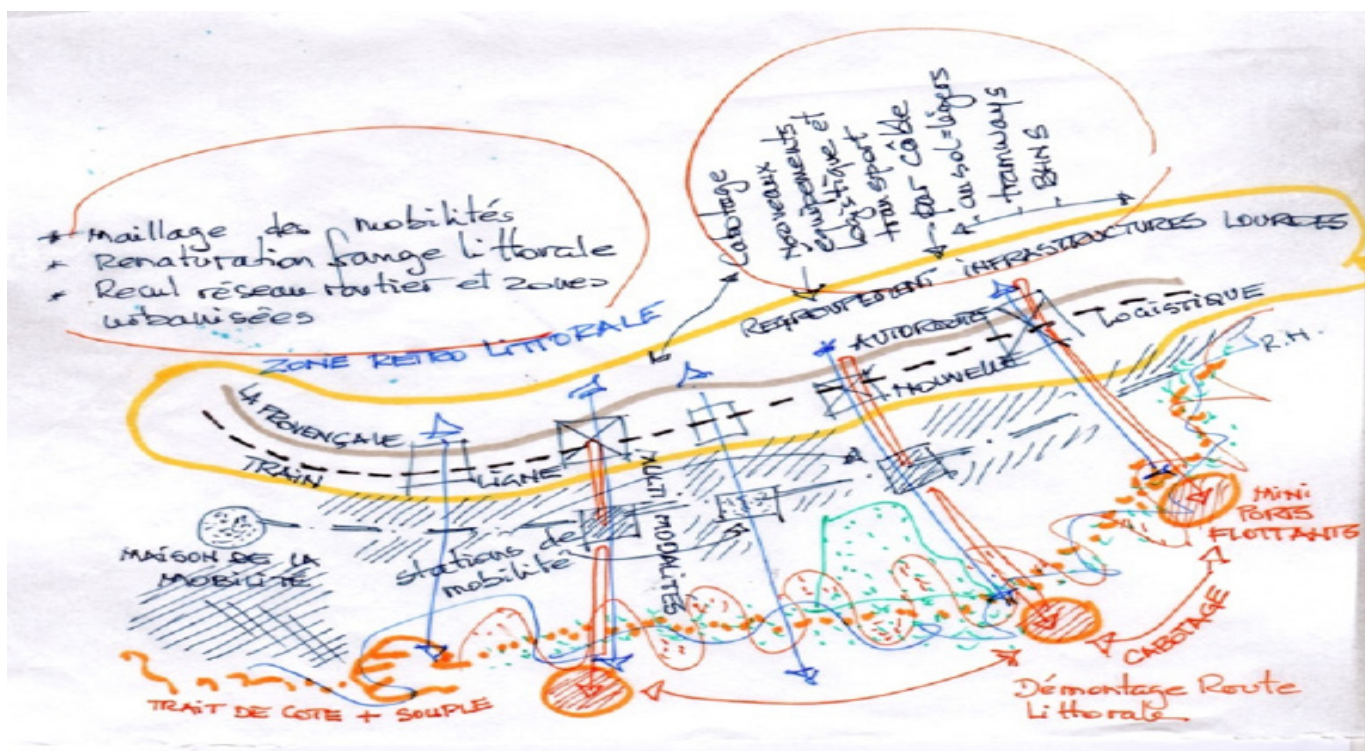 * Maillage des mobilités
* Renaturation frange littorale
* Recul réseau routier et zones
urbanisées
Cabotage
Nouveaux
équipements
logistique et
transport
par câble
au sol=légers
tramways
BHNS
ZONE RETRO LITTORALE
REGROUPEMENT INFRASTRUCTURES LOURDES
LA PROVENÇALE
AUTOROUTE
TRAIN
LIGNE
NOUVELLE
LOGISTIQUE
R.H.
MULTI MODALITES
MAISON DE LA
MOBILITÉ
stations de
mobilité
MINI
PORTS
FLOTTANTS
CABOTAGE
TRAIT DE COTE + SOUPLE
Démontage Route
Littorale